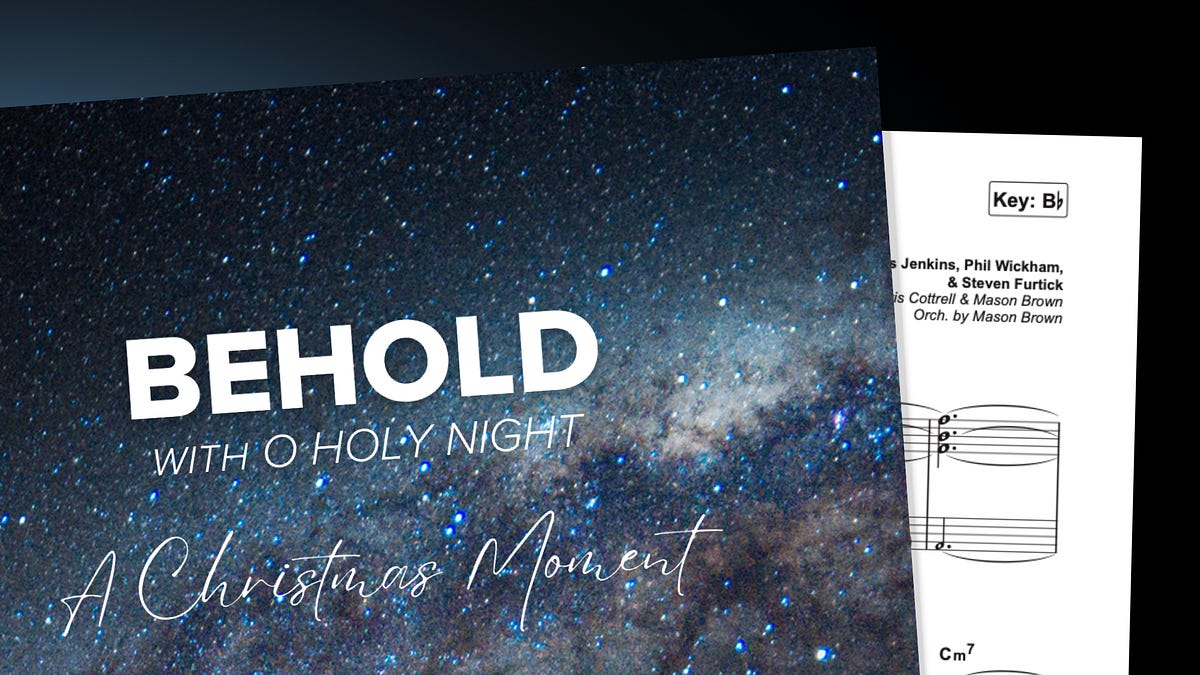 BEHOLD
WITH O HOLY NIGHT
A Christmas Moment
Key: B♭
Jenkins, Phil Wickham,
& Steven Furtick
Cottrell & Mason Brown
Orch. by Mason Brown
Cm7